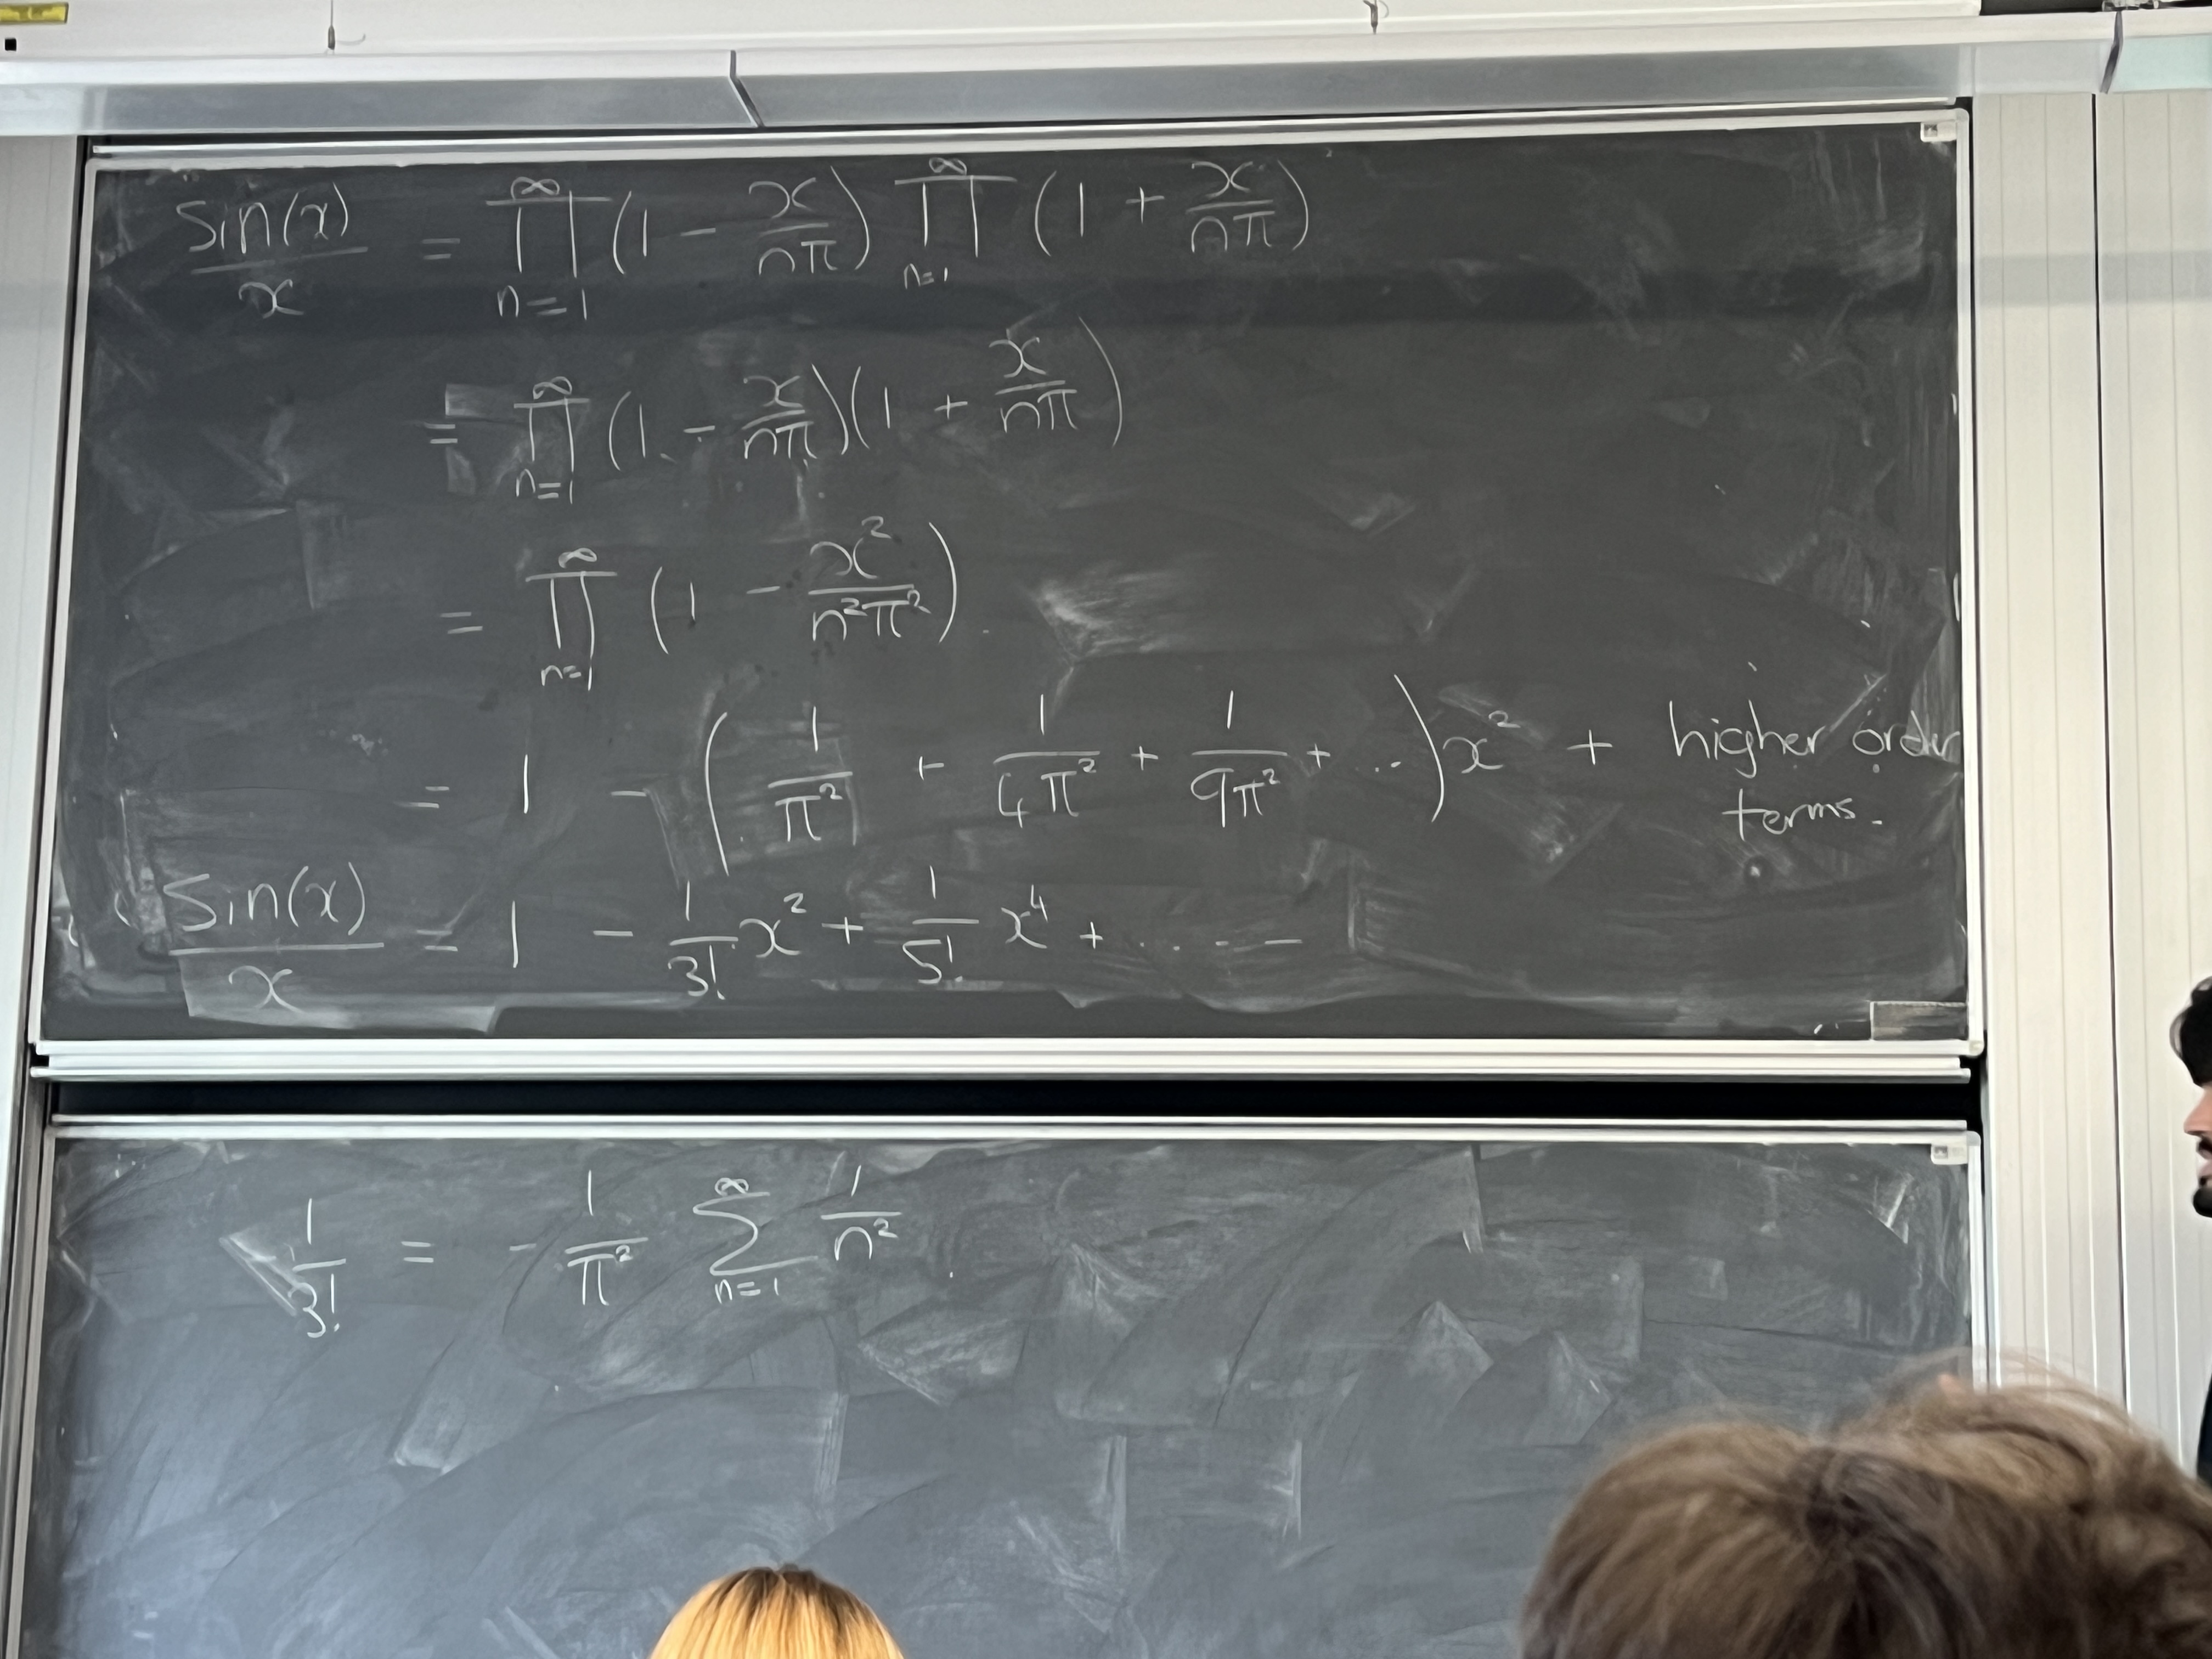 sin(x)/x = ∞∏n=1 (1 - x/nπ) ∞∏n=1 (1 + x/nπ)
= ∞∏n=1 (1 - x/nπ)(1 + x/nπ)
= ∞∏n=1 (1 - x²/n²π²).
= 1 - (1/π² + 1/4π² + 1/9π² + ...)x² + higher order
terms.
Sin(x)/x = 1 - 1/3! x² + 1/5! x⁴ + ....
1/3! = - 1/π² ∞∑n=1 1/n².